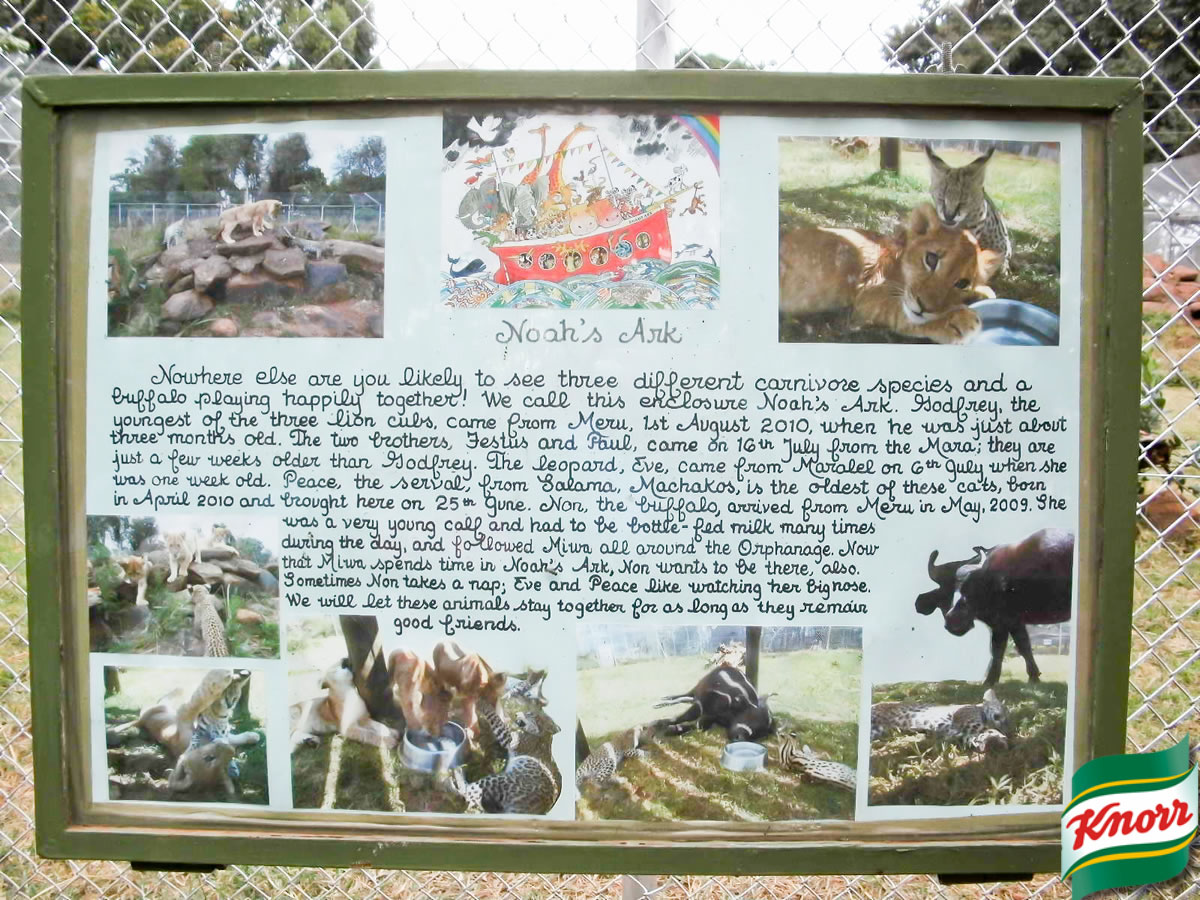 Noah's Ark
Nowhere else are you likely to see three different carnivore species and a
buffalo playing happily together! We call this enclosure Noah's Ark. Godfrey, the
youngest of the three lion cubs, came from Meru, 1st August 2010, when he was just about
three months old. The two brothers, Festus and Paul, came on 16th July from the Mara; they are
just a few weeks older than Godfrey. The leopard, Eve, came from Maralel on 6th July when she
was one week old. Peace, the serval, from Salama, Machakos, is the oldest of these cats, born
in April 2010 and brought here on 25th June. Non, the buffalo, arrived from Meru in May, 2009. She
was a very young calf and had to be bottle-fed milk many times
during the day, and followed Miwa all around the Orphanage. Now
that Miwa spends time in Noah's Ark, Non wants to be there, also.
Sometimes Non takes a nap; Eve and Peace like watching her big nose.
We will let these animals stay together for as long as they remain
good friends.
Knorr